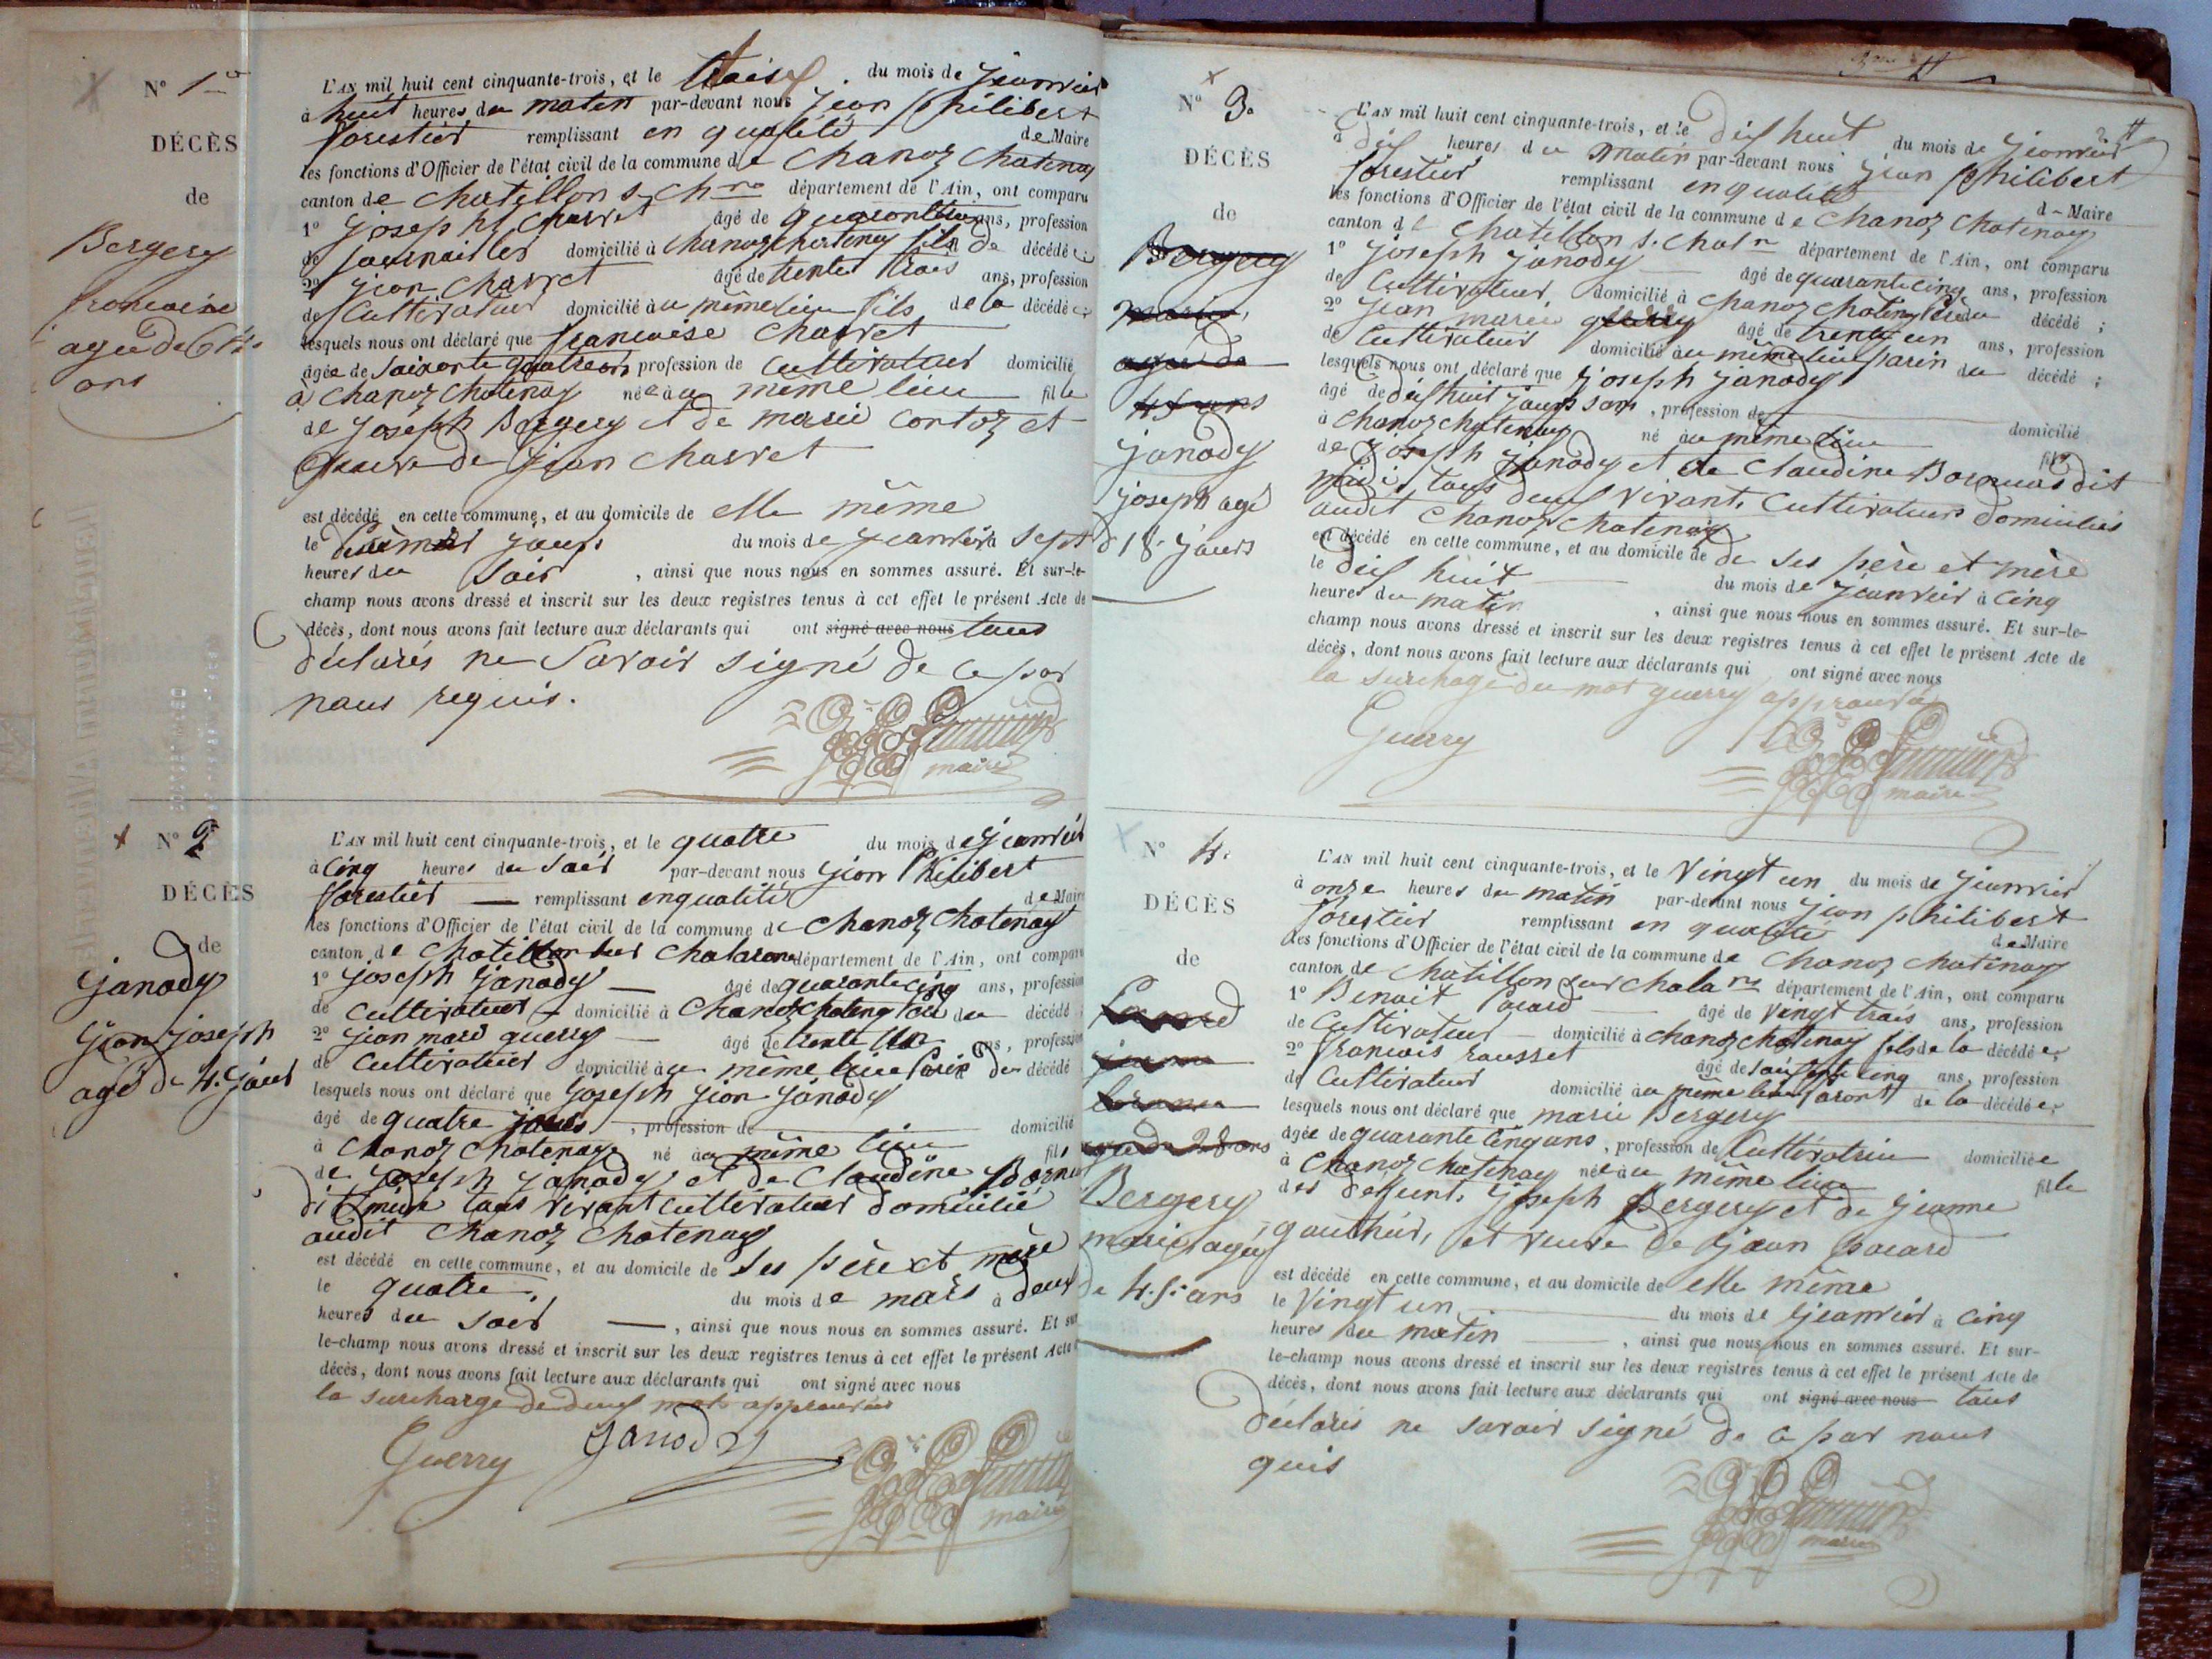 N° 1er
DÉCÈS
de
Bergery
francoise
agée de 64
ans
L'AN mil huit cent cinquante-trois, et le trois du mois de jeanvier
à huit heures du matin par-devant nous jean philibert
forestier remplissant en qualité de Maire
les fonctions d'Officier de l'état civil de la commune de Chanoz Chatenay
canton de chatillon s. Ch département de l'Ain, ont comparu
1° joseph Charvet âgé de ans, profession
de journailler domicilié à chanoz chatenay fils de décédée
2° jean Charvet âgé de trente trois ans, profession
de Cultivateur domicilié à u même lieu fils de la décédée
lesquels nous ont déclaré que francoise Charvet
âgée de soixante quatre ans profession de Cultivateur domicilié
à Chanoz Chatenay née à u même lieu fille
de joseph Bergery et de marie Contoz et
veuve de jean Charvet
est décédé en cette commune, et au domicile de elle même
le jour du mois de jeanvier à sept
heures du soir , ainsi que nous nous en sommes assuré. Et sur-le-
champ nous avons dressé et inscrit sur les deux registres tenus à cet effet le présent Acte de
décès, dont nous avons fait lecture aux déclarants qui ont signé avec nous tous
déclarés ne savoir signé de ce par
nous requis.
maire
N° 2
DÉCÈS
de
janody
jean joseph
agé de 4. jours
L'AN mil huit cent cinquante-trois, et le quatre du mois de jeanvier
à cinq heures du soir par-devant nous jean Philibert
forestier remplissant en qualité de Maire
les fonctions d'Officier de l'état civil de la commune de Chanoz Chatenay
canton de chatillon sur Chalaronne département de l'Ain, ont comparu
1° joseph janody âgé de quarante cinq ans, profession
de Cultivateur domicilié à Chanoz Chateny du décédé
2° jean marie guerry âgé de trente un ans, profession
de Cultivateur domicilié à u même lieu Parin du décédé
lesquels nous ont déclaré que joseph jean janody
âgé de quatre jours , profession de domicilié
à Chanoz Chatenay né à u même lieu fils
de joseph janody et de Claudine
dit midi tous vivant cultivateur domicilié
audit Chanoz Chatenay
est décédé en cette commune, et au domicile de ses père et mère
le quatre du mois de mars à deux
heures du soir , ainsi que nous nous en sommes assuré. Et sur
le-champ nous avons dressé et inscrit sur les deux registres tenus à cet effet le présent Acte
décès, dont nous avons fait lecture aux déclarants qui ont signé avec nous
la surcharge de deux mots approuvée
Guerry janody
maire
N° 3.
DÉCÈS
de
Bergery
marie,
agée de
45 ans
janody
joseph agé
d 18. jours
L'AN mil huit cent cinquante-trois, et le dix huit du mois de jeanvier
à dix heures du matin par-devant nous jean philibert
forestier remplissant en qualité de Maire
les fonctions d'Officier de l'état civil de la commune de Chanoz Chatenay
canton de Chatillon s. Chal ne département de l'Ain, ont comparu
1° joseph janody âgé de quarante cinq ans, profession
de Cultivateur domicilié à Chanoz Chateny Père du décédé ;
2° jean marie guerry âgé de trente un ans, profession
de Cultivateur domicilié à u même lieu Parin du décédé ;
lesquels nous ont déclaré que joseph janody
âgé de dix huit jours , profession de domicilié
à Chanoz Chatenay né à u même lieu fils
de joseph janody et de Claudine dit
midi, tous deux vivant. Cultivateurs domiciliés
audit Chanoz Chatenay
est décédé en cette commune, et au domicile de de ses père et mère
le dix huit du mois de jeanvier à cinq
heures du matin , ainsi que nous nous en sommes assuré. Et sur-le-
champ nous avons dressé et inscrit sur les deux registres tenus à cet effet le présent Acte de
décès, dont nous avons fait lecture aux déclarants qui ont signé avec nous
la surchage du mot guerry approuvé
Guerry
maire
N° 4.
DÉCÈS
de
agée de 28 ans
Bergery
marie agée
de 45. ans
L'AN mil huit cent cinquante-trois, et le Vingt un du mois de jeanvier
à onze heures du matin par-devant nous jean philibert
forestier remplissant en qualité de Maire
les fonctions d'Officier de l'état civil de la commune de Chanoz Chatenay
canton de Chatillon sur Chala ne département de l'Ain, ont comparu
1° Benoit Pocard âgé de Vingt trois ans, profession
de Cultivateur domicilié à Chanoz Chatenay fils de la décédée
2° francois rousset âgé de soixante cinq ans, profession
de Cultivateur domicilié à u même lieu Parent de la décédée
lesquels nous ont déclaré que marie Bergery
âgée de quarante cinq ans , profession de Cultivatrice domiciliée
à Chanoz Chatenay née à u même lieu fille
des deffunt. joseph Bergery et de jeanne
gauthier, et veuve de jean Pocard
est décédé en cette commune, et au domicile de elle même
le Vingt un du mois de jeanvier à cinq
heures du matin , ainsi que nous nous en sommes assuré. Et sur-
le-champ nous avons dressé et inscrit sur les deux registres tenus à cet effet le présent Acte de
décès, dont nous avons fait lecture aux déclarants qui ont signé avec nous tous
déclarés ne savoir signé de ce par nous
quis
maire